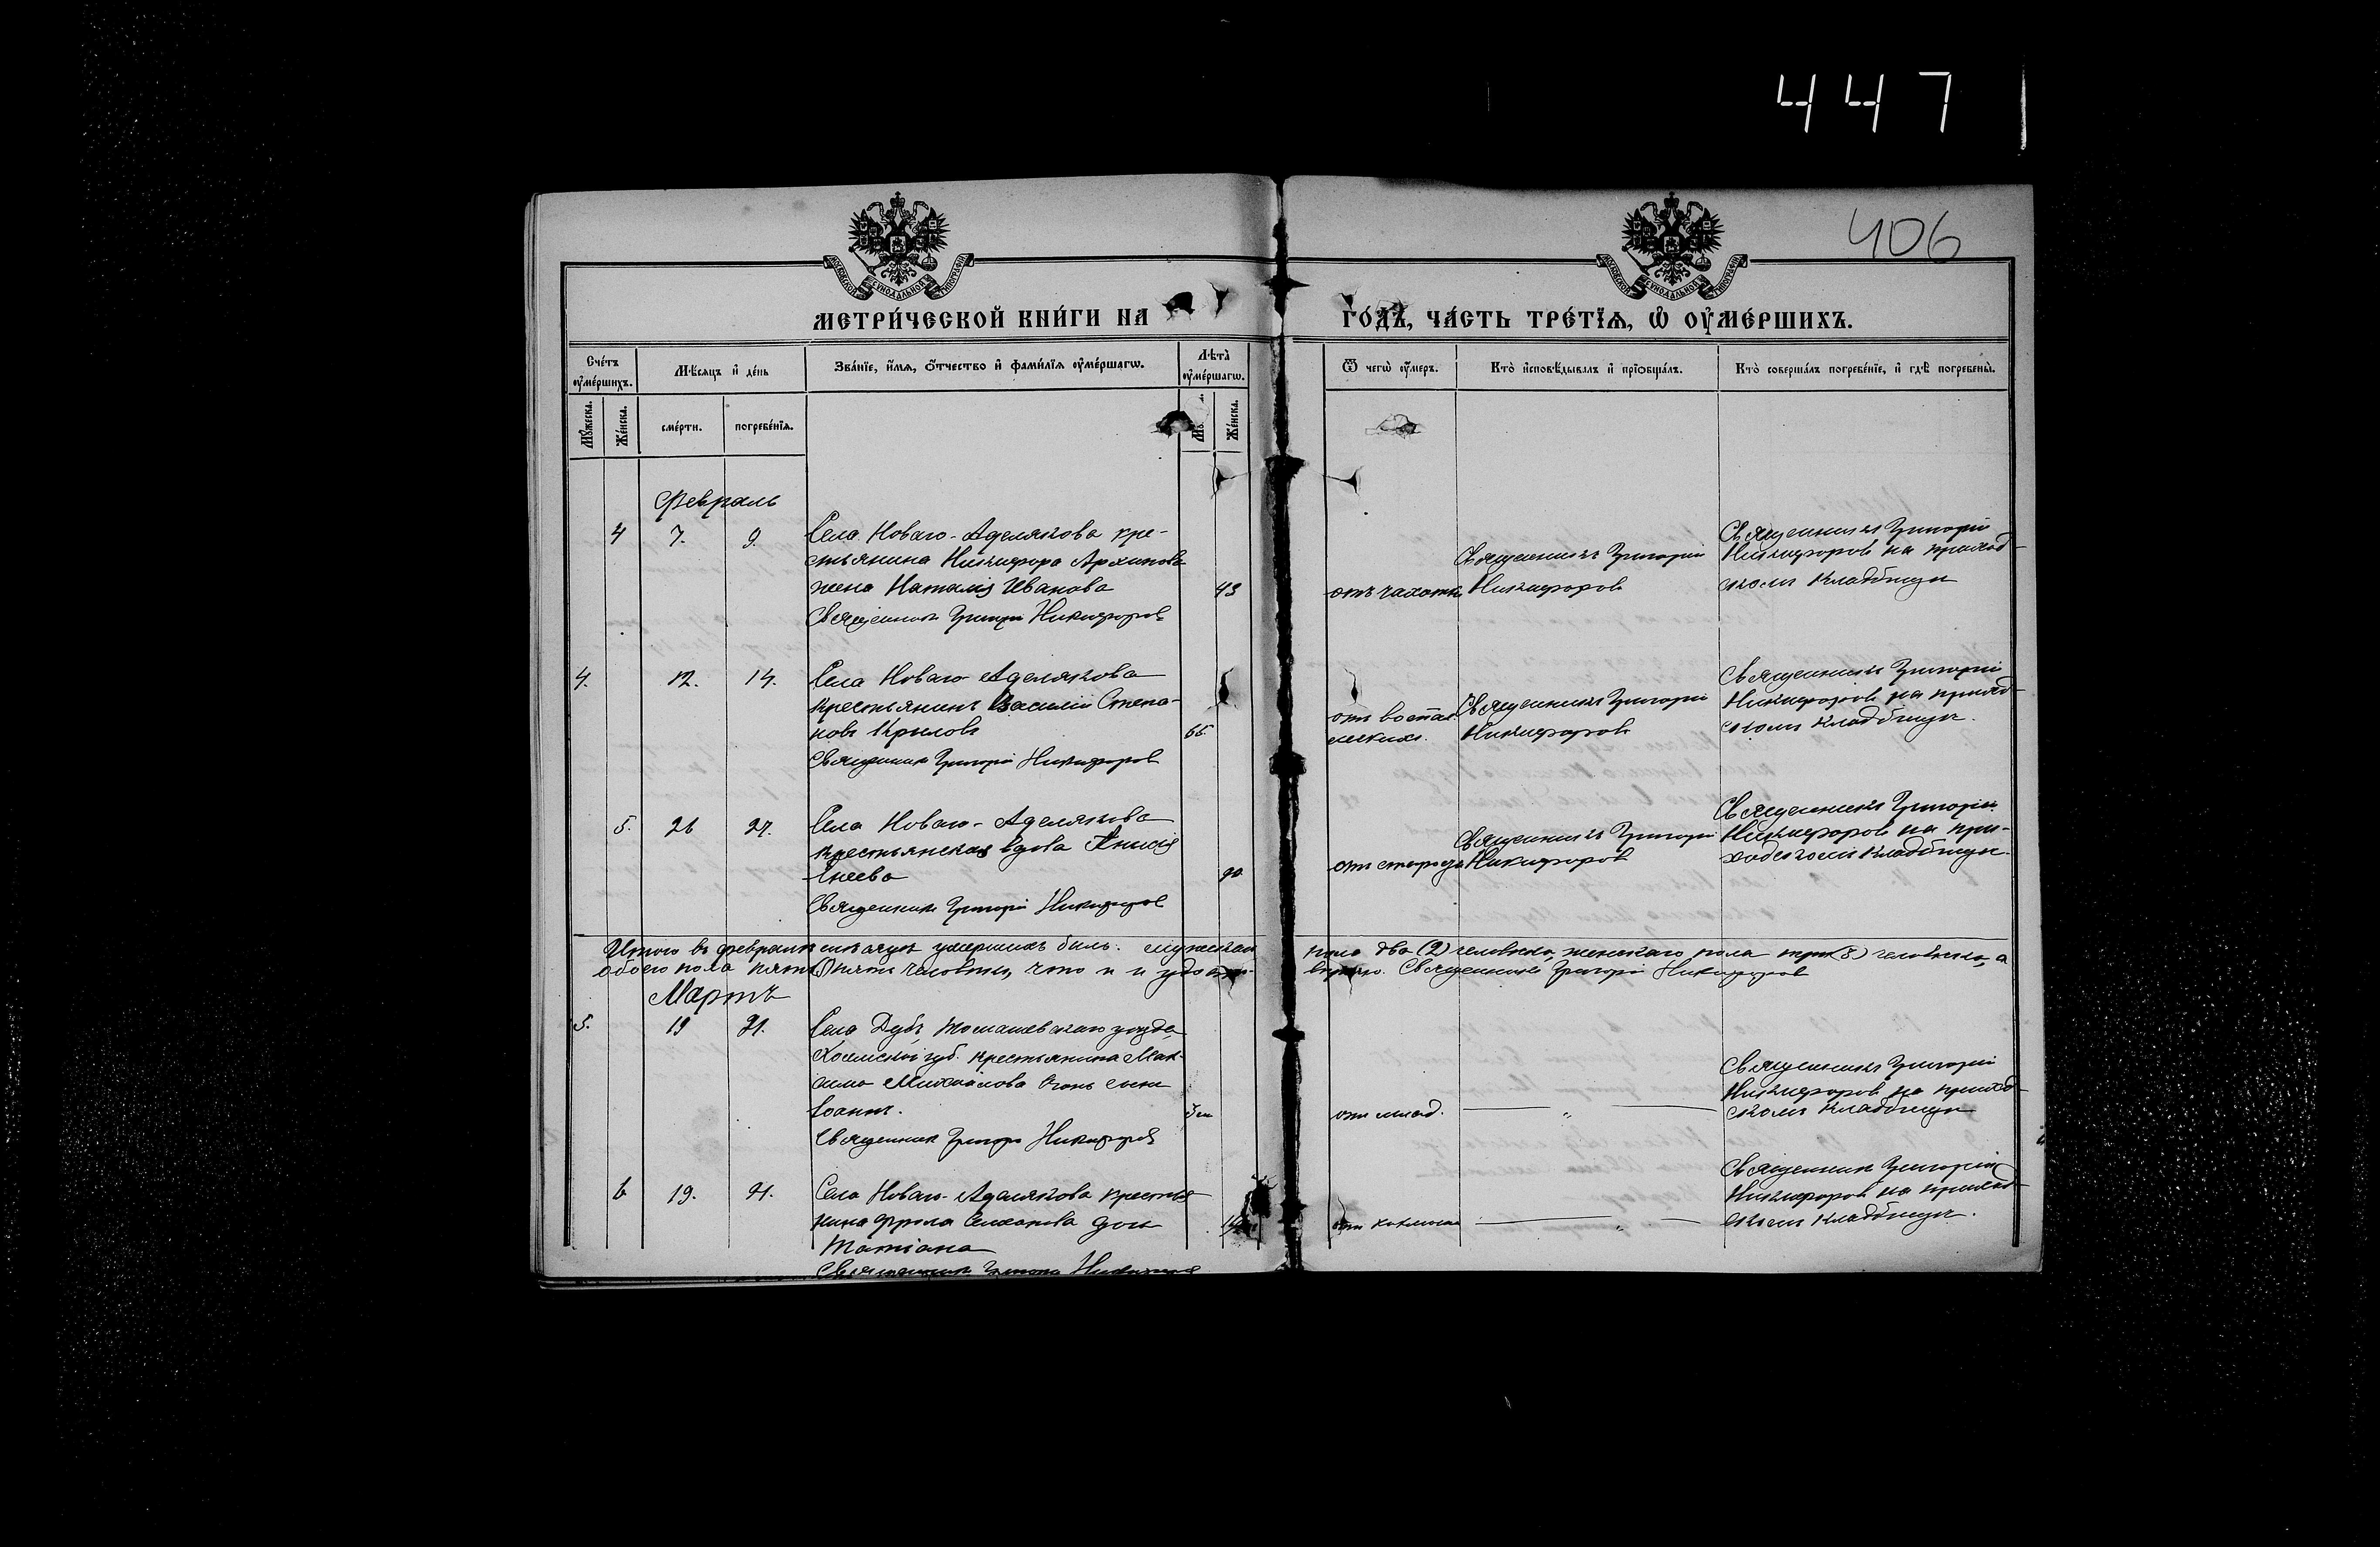 447
406
МЕТРИ́ЧЕСКОЙ КНИ́ГИ НА
ГО́ДЪ, ЧА́СТЬ ТРЕ́ТЇѦ, Ѽ ОУ҆МЕ́РШИХЪ.
Сче́тъ оу҆ме́ршихъ.
Мѣ́сяцъ и҆ де́нь
Зва́нїе, и҆́мѧ, ѻ҆́тчество и҆ фами́лїѧ оу҆ме́ршагѡ.
Лѣ́та оу҆ме́ршагѡ.
Ѿ чегѡ̀ оу҆́меръ.
Кто̀ и҆сповѣ́дывалъ и҆ прїѡбща́лъ.
Кто̀ соверша́лъ погребе́нїе, и҆ гдѣ̀ погребены̀.
Му́жеска.
Же́нска.
сме́рти.
погребе́нїѧ.
Же́нска.
Февраль
4 7. 9. Села Новаго-Аделякова кре-
стьянина Никифора Архипова
жена Наталія Иванова 43
Священникъ Григорій Никифоровъ
отъ чахотки
Священникъ Григорій
Никифоровъ
Священникъ Григорій
Никифоровъ на приход-
скомъ кладбищѣ
4. 12. 14. Села Новаго-Аделякова
крестьянинъ Василій Степа-
новъ Крыловъ 66
Священникъ Григорій Никифоровъ
отъ воспал.
легкихъ.
Священникъ Григорій
Никифоровъ
Священникъ Григорій
Никифоровъ на приход-
скомъ кладбищѣ.
5. 26 27. Села Новаго-Аделякова
крестьянская вдова Анисія
Енеева 90
Священникъ Григорій Никифоровъ
отъ старости
Священникъ Григорій
Никифоровъ
Священникъ Григорій
Никифоровъ на при-
ходскомъ кладбищѣ.
Итого въ февралѣ мѣсяцѣ умершихъ было: мужскаго пола два (2) человѣка, женскаго пола три (3) человѣка, а
обоего пола пять (5) пять человѣкъ, что и удо Священникъ Григорій Никифоровъ
Мартъ
5. 19 21. Села Дубъ, Томашевскаго уѣзда
Холмской губ. крестьянина Мак-
сима Михайлова сынъ
Іоаннъ. 3
Священникъ Григорій Никифоровъ
отъ млад.
Священникъ Григорій
Никифоровъ на приход-
скомъ кладбищѣ
6 19. 21. Села Новаго-Аделякова крестья-
нина Фрола дочь
Татіана
Священникъ Григорій Никифоровъ
отъ коклюша
Священникъ Григорій
Никифоровъ на приход-
скомъ кладбищѣ.